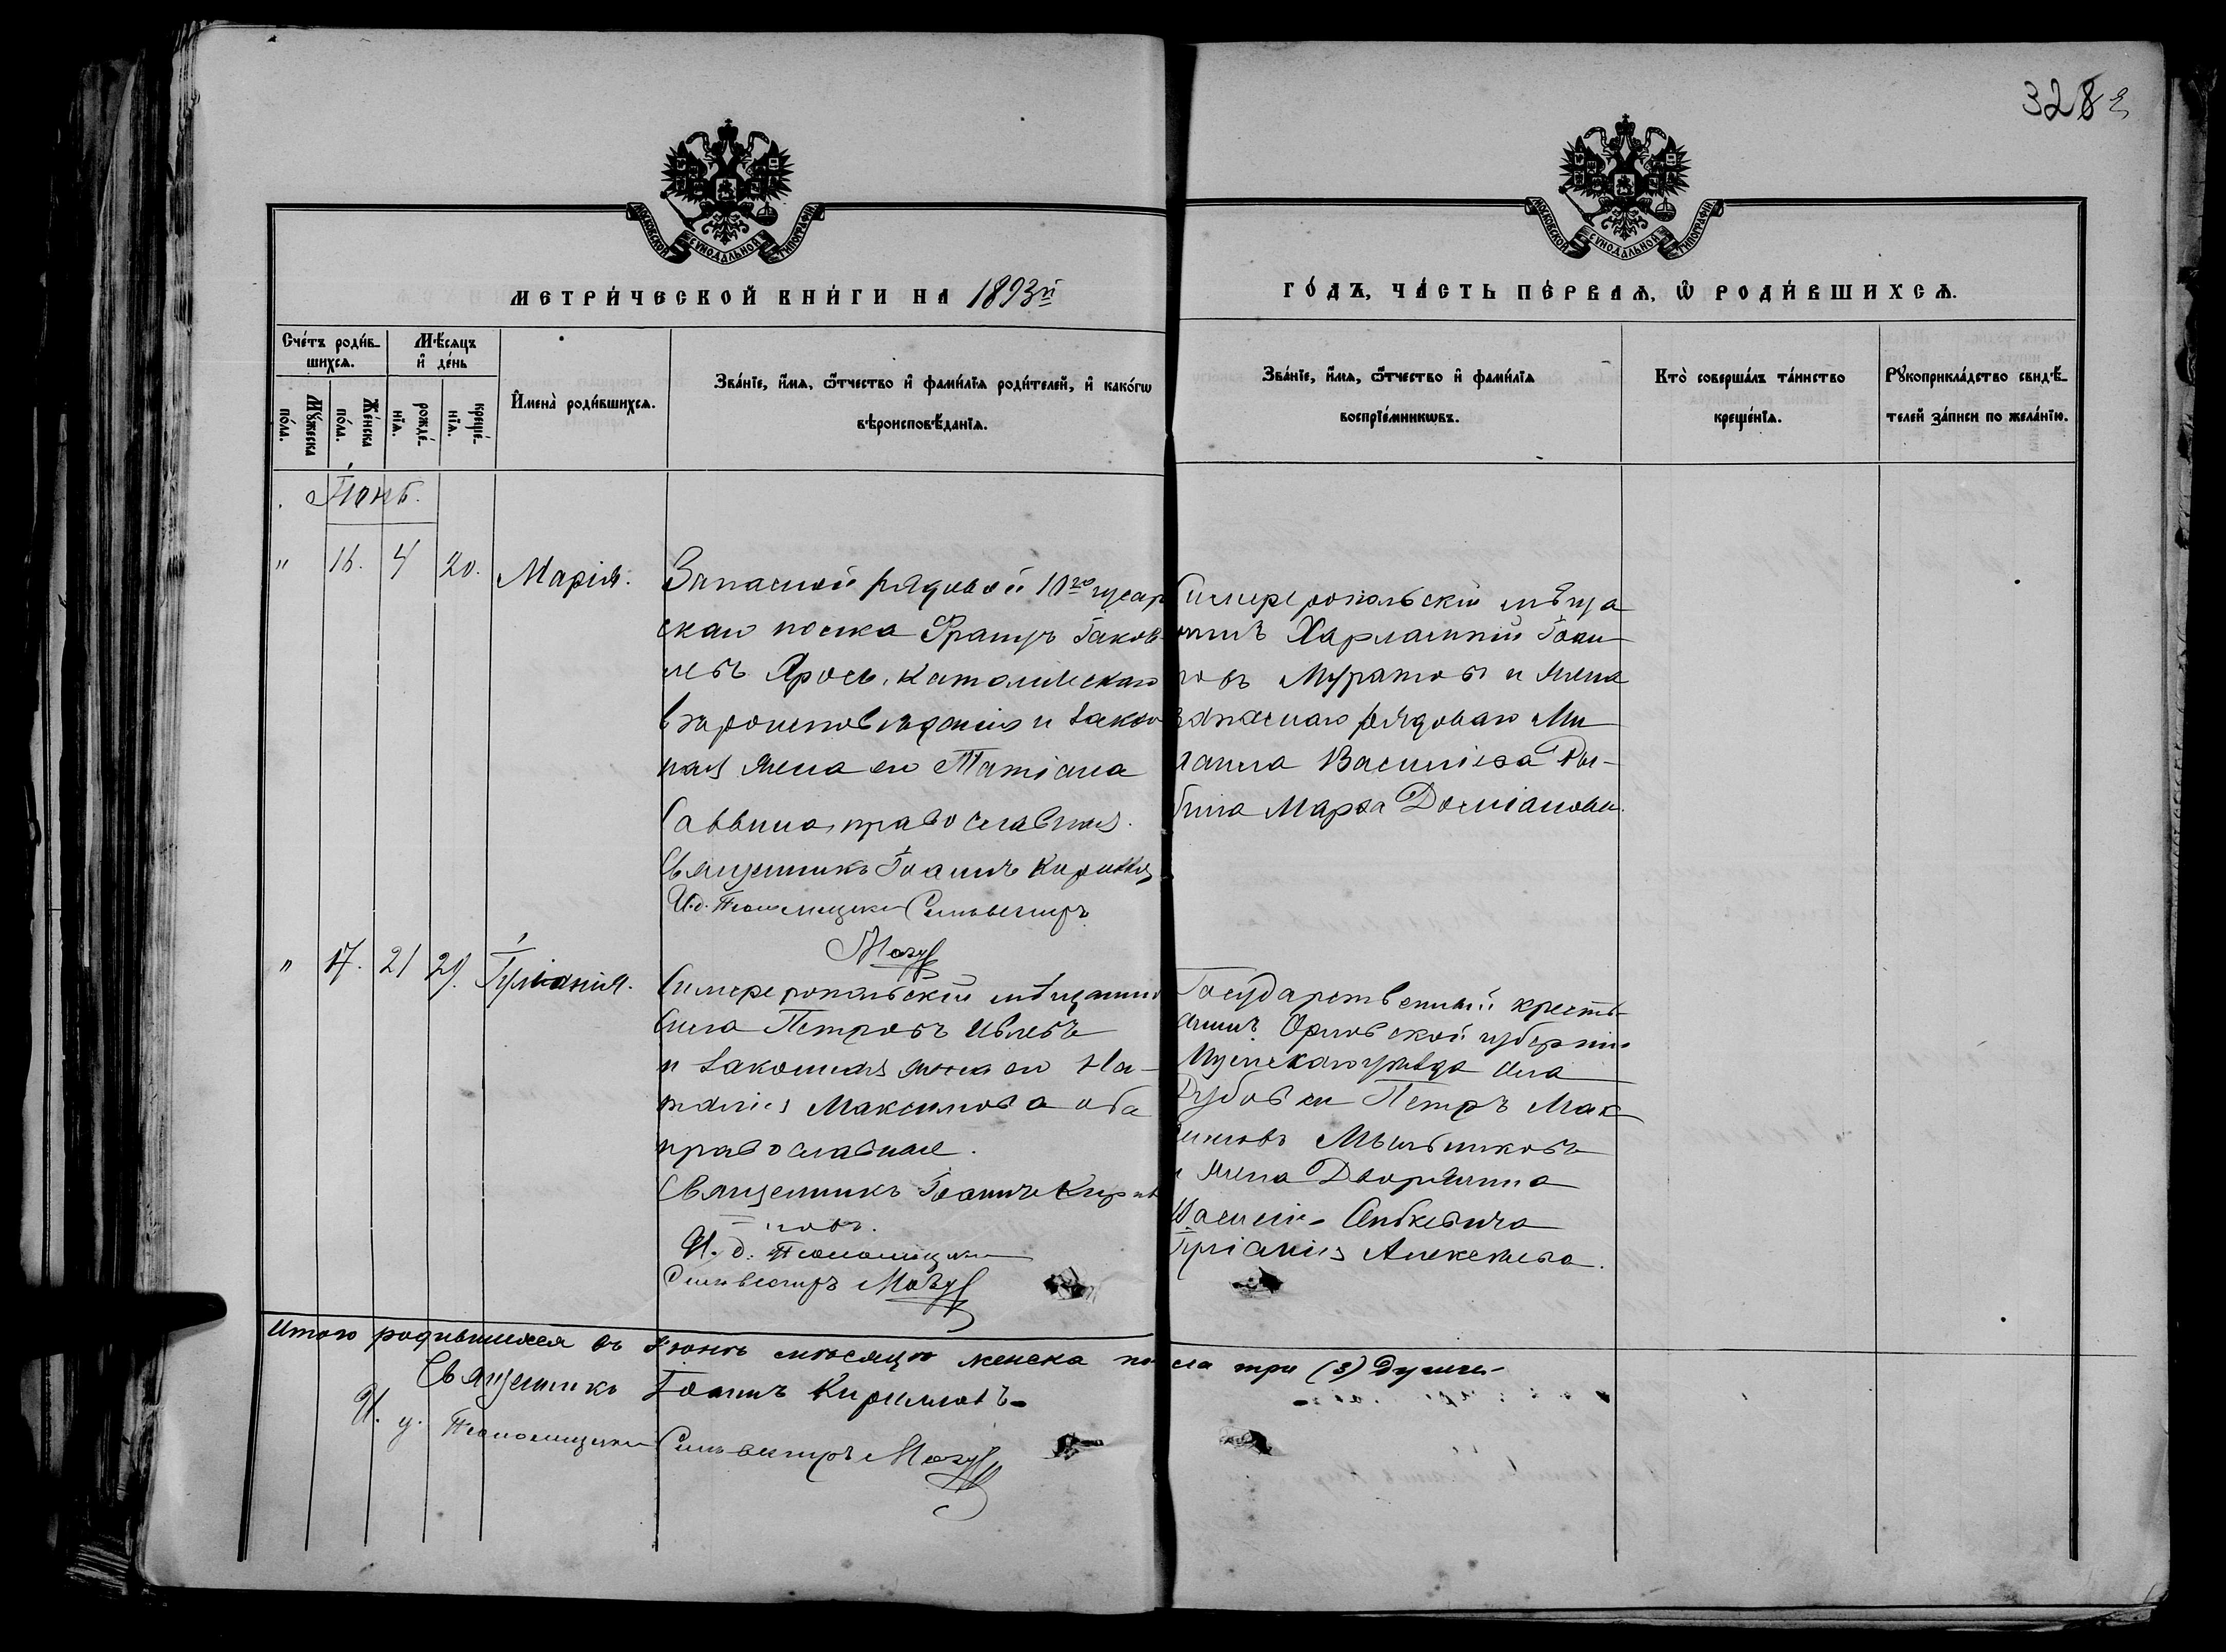 328
МОСКОВСКОЙ СѴНОДАЛЬНОЙ ТИПОГРАФІИ
МОСКОВСКОЙ СѴНОДАЛЬНОЙ ТИПОГРАФІИ
МЕТРИ́ЧЕСКОЙ КНИ́ГИ НА 1893й
ГО́ДЪ, ЧА́СТЬ ПЕ́РВАѦ, Ѿ РОДИ́ВШИХСѦ.
Сче́тъ роди́в-
шихсѧ.
Мѣ́сѧцъ
и҆ де́нь
Мꙋ́жеска
по́ла.
Же́нска
по́ла.
рожде́-
нїѧ.
креще́-
нїѧ.
И҆мена̀ роди́вшихсѧ.
Зва́нїе, и҆́мѧ, ѻ҆́тчество и҆ фами́лїѧ роди́телей, и҆ како́гѡ
вѣроисповѣ́данїѧ.
Зва́нїе, и҆́мѧ, ѻ҆́тчество и҆ фами́лїѧ
воспрїе́мникѡвъ.
Кто̀ соверша́лъ та́инство
креще́нїѧ.
Рꙋкоприкла́дство свидѣ́-
телей за́писи по жела́нїю.
Іюнь.
" 16. 4 20. Марія.
Запасной рядовой 10го гусар
скаго полка Францъ Іаков-
левъ Ярось, католическаго
вѣроисповѣданія и закон
ная жена его Татіана
Саввина, православная.
Священникъ Іоаннъ Кирилло
И.д. Псаломщика Сильвестръ
Мазу
Симферопольскій мѣща
нинъ Харлампій Іоан
новъ Муратовъ и жена
запаснаго рядоваго Ми
хаила Васильева Ры-
бина Марѳа Доміанова.
" 17. 21 29. Іуліанія.
Симферопольскій мѣщанин
Сила Петровъ Ивлевъ
и законная жена его На-
талія Максимова оба
православные.
Священникъ Іоаннъ Кирил
ловъ.
И. д. Псаломщика
Сильвестръ Мазу
Государственный кресть-
янинъ Орловской губерніи
Мценскаго уѣзда села
Петръ Мак
симовъ Мыльниковъ
и жена Дворянина
Іуліанія Алексѣева.
Итого родившихся въ Іюнь мѣсяцѣ женска пола три (3) души-
Священникъ Іоаннъ Кирилловъ-
И. д. Псаломщика Сильвестръ Мазу